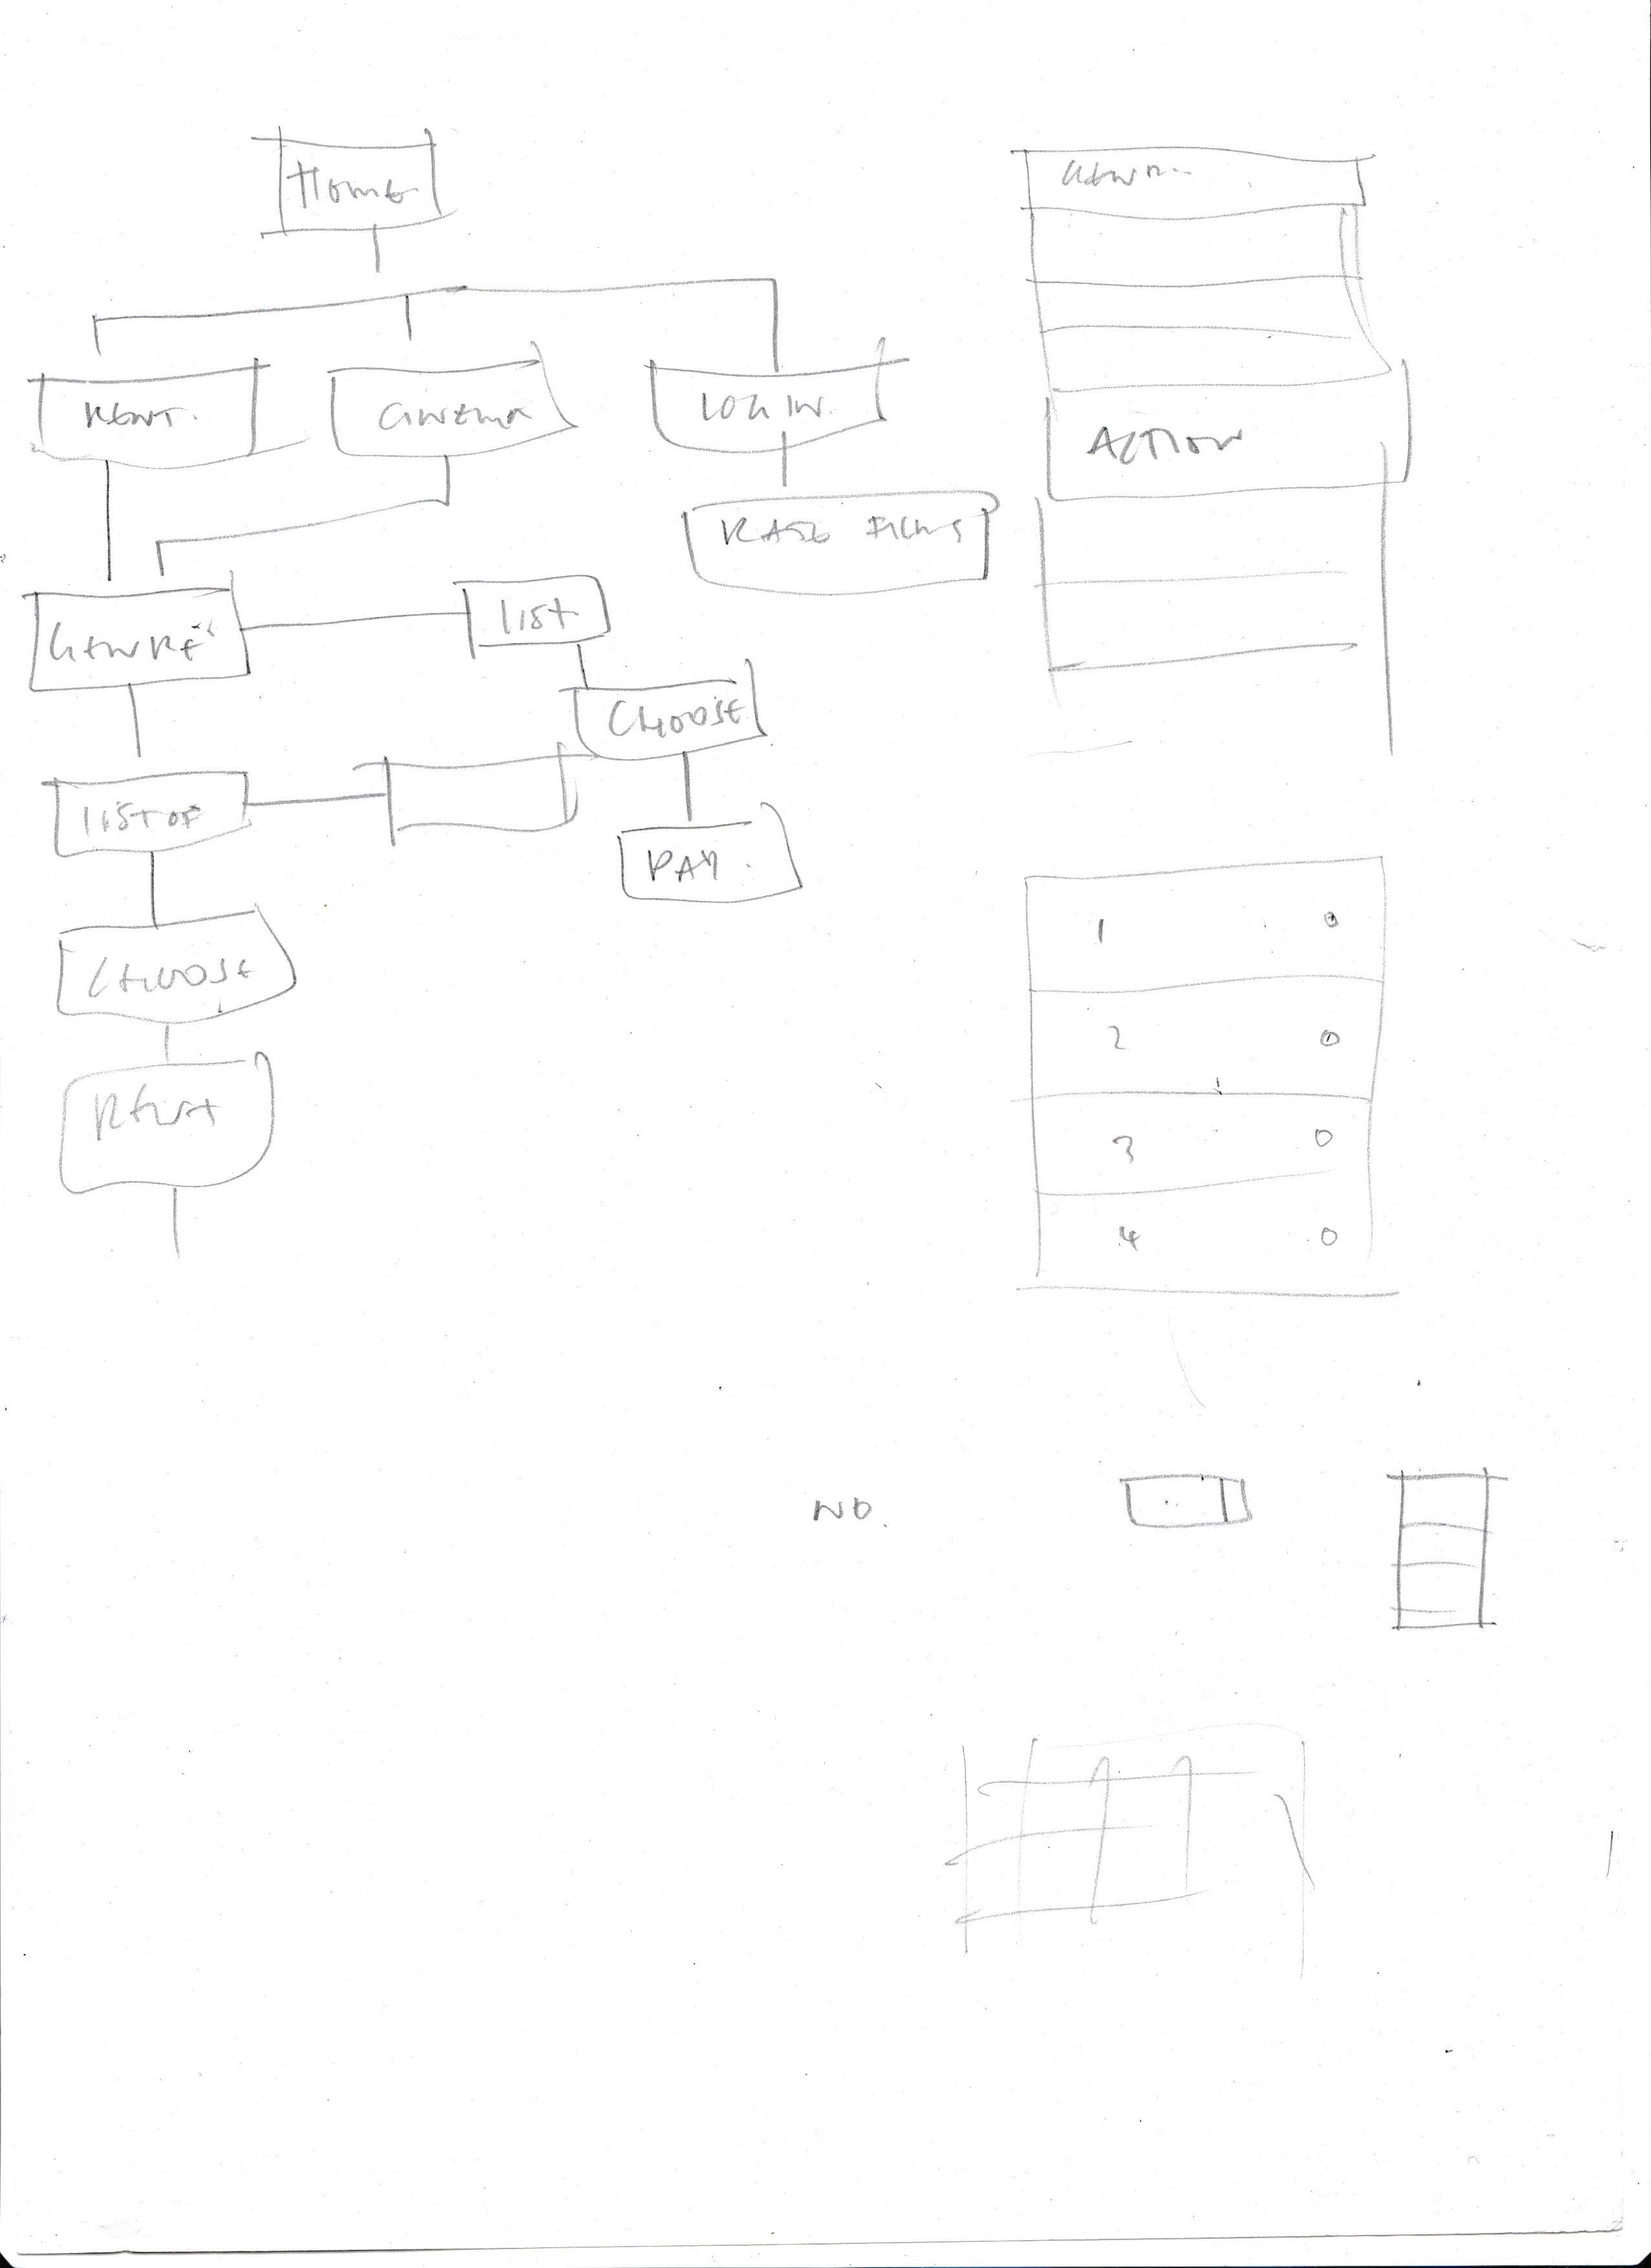 Home
RENT.
CINEMA
LOGIN.
RATE FILMS
GENRE
list
CHOOSE
list of
PAY.
CHOOSE
RENT
GENR..
ACTION
1 0
2 0
3 0
4 0
NO.